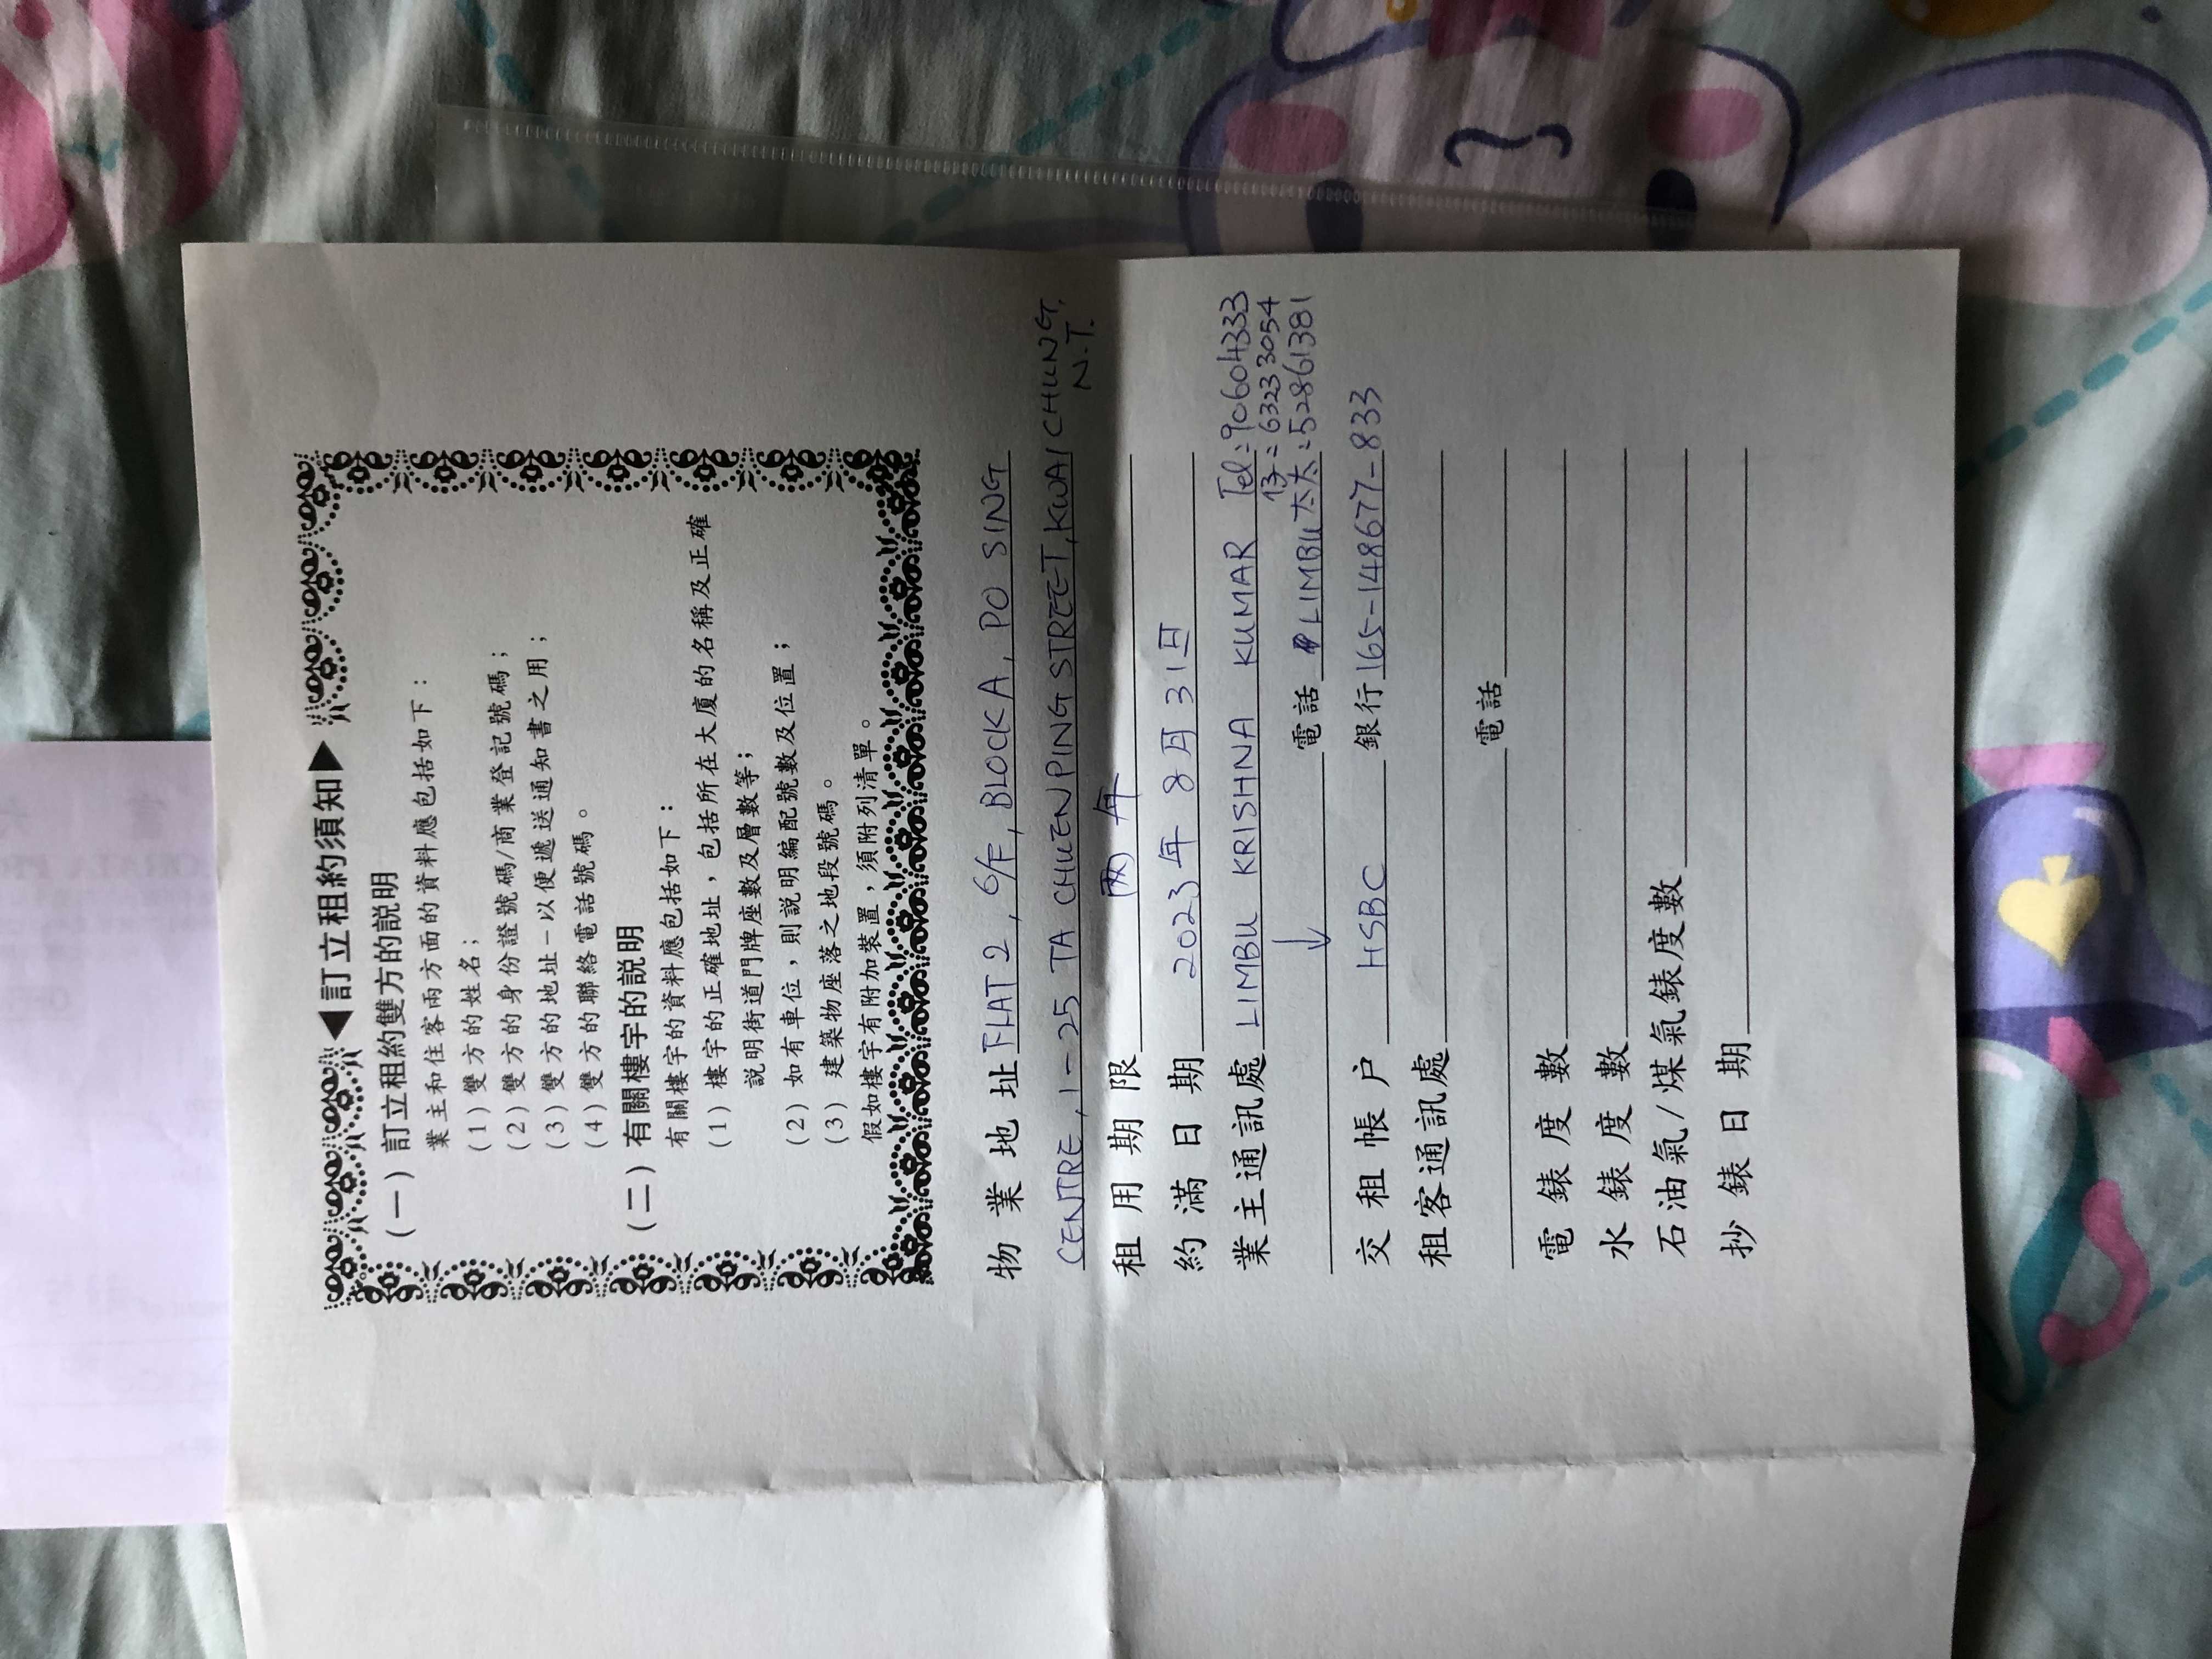 ◀訂立租約須知▶
(一)訂立租約雙方的説明
業主和住客兩方面的資料應包括如下：
(1)雙方的姓名；
(2)雙方的身份證號碼/商業登記號碼；
(3)雙方的地址－以便遞送通知書之用；
(4)雙方的聯絡電話號碼。
(二)有關樓宇的説明
有關樓宇的資料應包括如下：
(1)樓宇的正確地址，包括所在大廈的名稱及正確
說明街道門牌座數及層數等；
(2)如有車位，則説明編配號數及位置；
(3)建築物座落之地段號碼。
假如樓宇有附加裝置，須附列清單。
物業地址 FLAT 2, 6/F, BLOCK A, PO SING
CENTRE, 1-25 TA CHUEN PING STREET, KWAI CHUNG,
N.T.
租用期限 兩年
約滿日期 2023年8月31日
業主通訊處 LIMBU KRISHNA KUMAR Tel: 90604333
仔: 63233054
電話 LIMBU太太: 52861381
交租帳户 HSBC 銀行 165-148677-833
租客通訊處
電話
電錶度數
水錶度數
石油氣/煤氣錶度數
抄錶日期